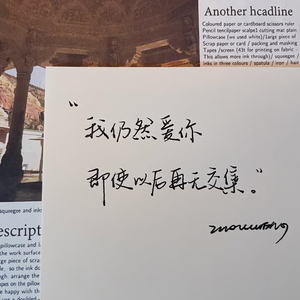 Another hcadline
Coloured paper or cardboard scissors ruler
Pencil tencilpaper scalpel cutting mat plain
Pillowcase (we used white)/large piece of
Scrap paper or card / packing and masking
Tapes /screen (43t for printing on fabric
This allows more ink through)/ squeegee /
inks in three colours / spatula / iron / hair
“
我仍然爱你
即使以后再无交集。”
squeegee and inks
escript
pillowcase and l
ge piece of scra
so the ink do
arrange the
pes on the pa
be happy with th